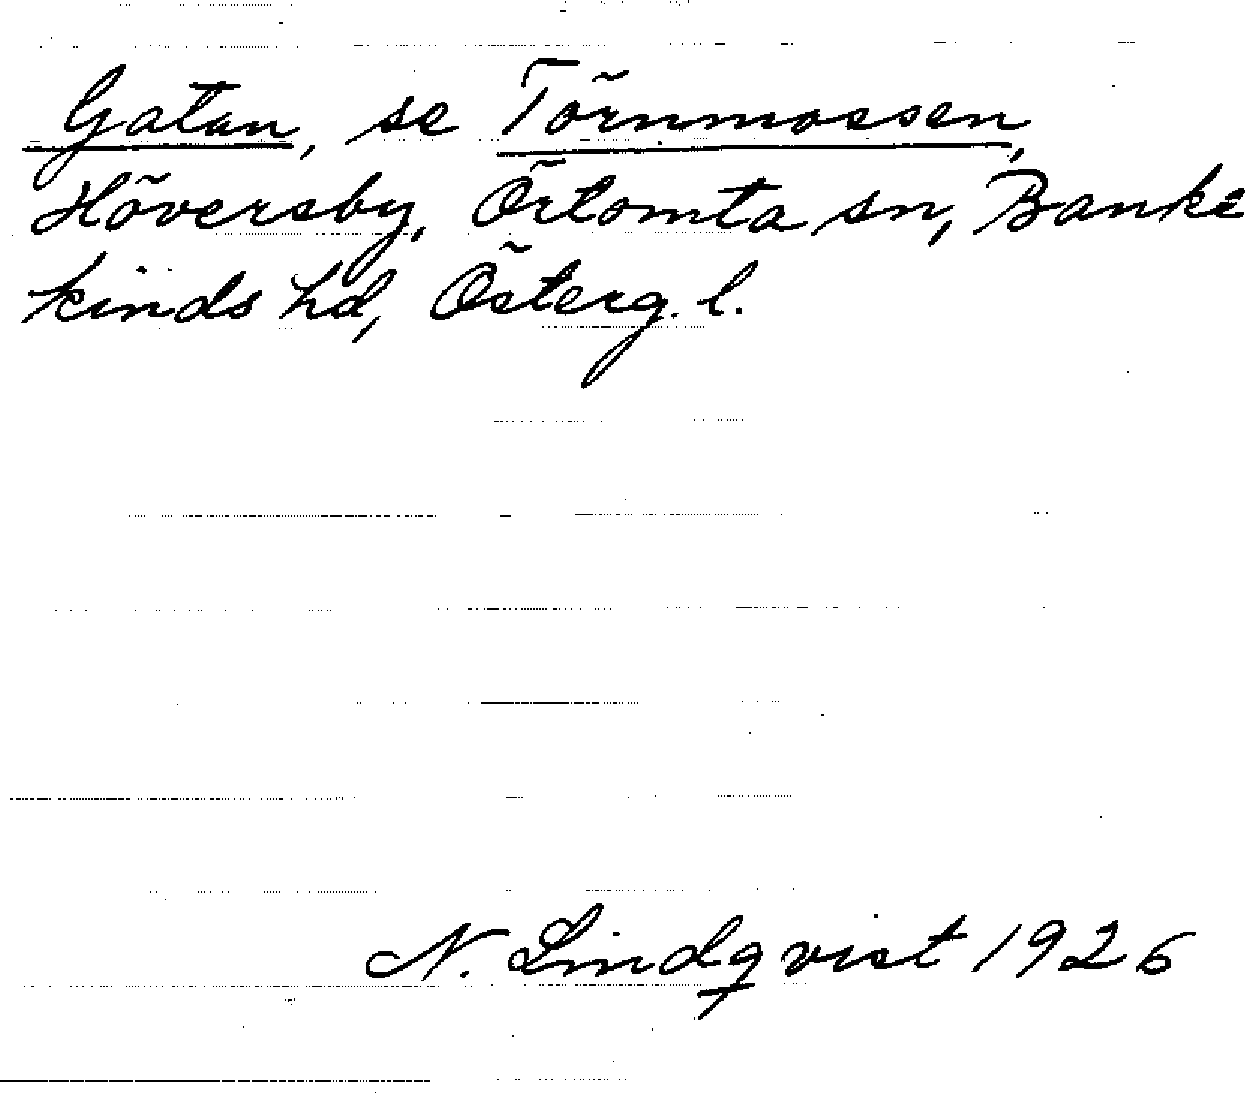 Gatan, se Törnmossen,
Höversby, Örtomta sn, Banke
kinds hd, Österg. l.
N. Lindqvist 1926